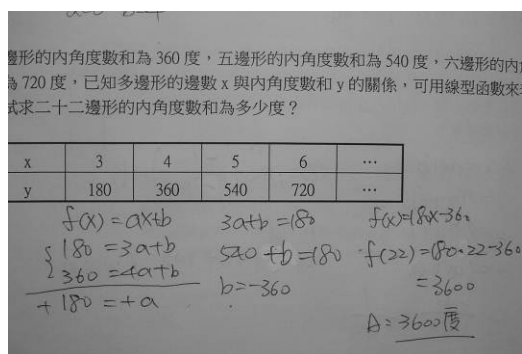 邊形的內角度數和為 360 度,五邊形的內角度數和為 540 度,六邊形的內
為 720 度,已知多邊形的邊數 x 與內角度數和 y 的關係,可用線型函數來
試求二十二邊形的內角度數和為多少度?
x 3 4 5 6 …
y 180 360 540 720 …
f(x)=ax+b
180=3a+b
360=4a+b
+180=+a
3a+b=180
540+b=180
b=-360
f(x)=180x-360
f(22)=180·22-360
=3600
A:3600度